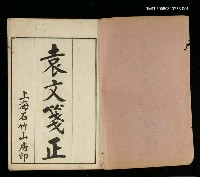 袁文箋正
上海石竹山房印